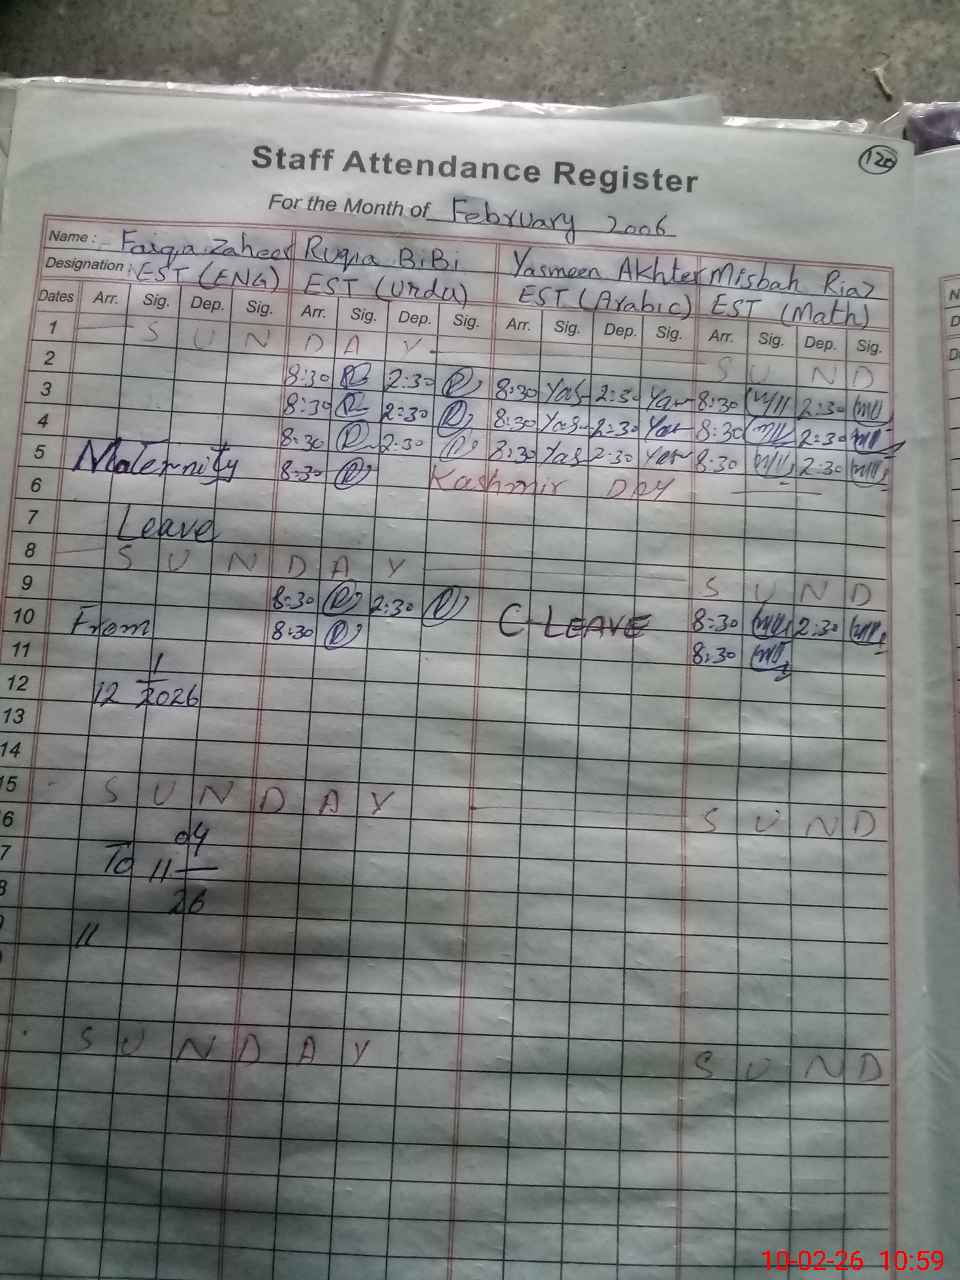 120
Staff Attendance Register
For the Month of February 2006
Name: Faiqa Zaheer Ruqia BiBi Yasmeen Akhter Misbah Riaz
Designation: EST (ENG) EST (Urdu) EST (Arabic) EST (Math)
Dates Arr. Sig. Dep. Sig. Arr. Sig. Dep. Sig. Arr. Sig. Dep. Sig. Arr. Sig. Dep. Sig.
1 S U N D A Y S U N D
2 8:30 2:30 8:30 Yas 2:30 Yas 8:30 2:30
3 8:30 2:30 8:30 Yas 2:30 Yas 8:30 2:30
4 8:30 2:30 8:30 Yas 2:30 Yas 8:30 2:30
5 Maternity 8:30 Kashmir DAY
6
7 Leave
8 S U N D A Y S U N D
9 8:30 2:30 8:30 2:30
10 From 8:30 C-LEAVE 8:30
11
12 12 1/2026
13
14
15 S U N D A Y S U N D
6
7 To 11 04/26
8
11
S U N D A Y S U N D
10-02-26 10:59